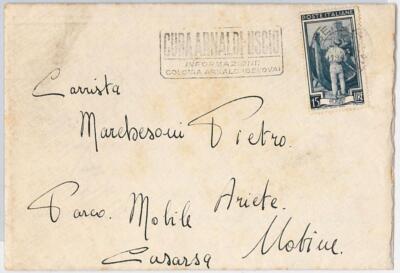 CURA ARNALDI-USCIO
INFORMAZIONI:
COLONIA ARNALDI (GENOVA)
POSTE ITALIANE
15
LIRE
Carrista
Marchesoni Pietro.
Parco Mobile Ariete.
Casarsa Udine